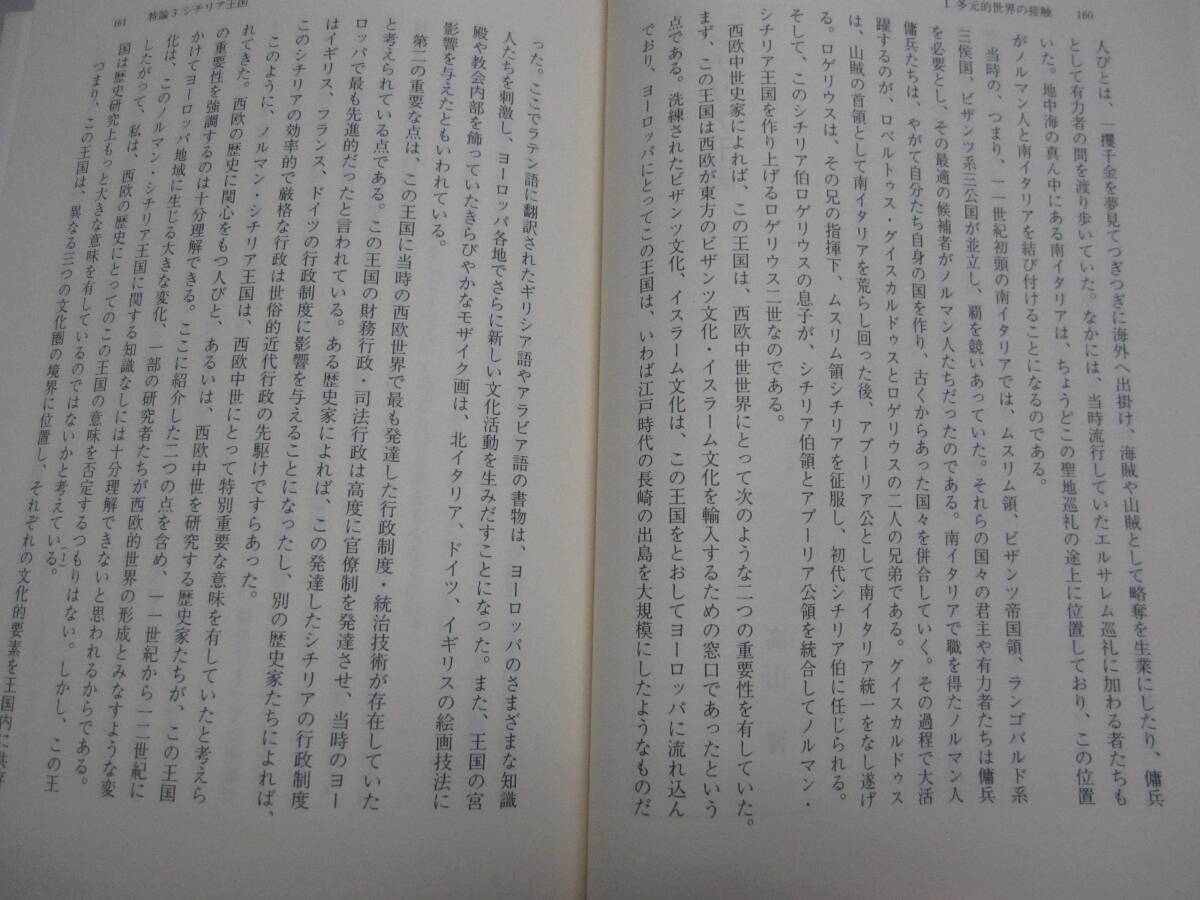 I 多元的世界の接触 160
人びとは、一攫千金を夢見てつぎつぎに海外へ出掛け、海賊や山賊として略奪を生業にしたり、傭兵
として有力者の間を渡り歩いていた。なかには、当時流行していたエルサレム巡礼に加わる者たちも
いた。地中海の真ん中にある南イタリアは、ちょうどこの聖地巡礼の途上に位置しており、この位置
がノルマン人と南イタリアを結び付けることになるのである。
当時の、つまり、一一世紀初頭の南イタリアでは、ムスリム領、ビザンツ帝国領、ランゴバルド系
三侯国、ビザンツ系三公国が並立し、覇を競いあっていた。それらの国々の君主や有力者たちは傭兵
を必要とし、その最適の候補者がノルマン人たちだったのである。南イタリアで職を得たノルマン人
傭兵たちは、やがて自分たち自身の国を作り、古くからあった国々を併合していく。その過程で大活
躍するのが、ロベルトゥス・グイスカルドゥスとロゲリウスの二人の兄弟である。グイスカルドゥス
は、山賊の首領として南イタリアを荒らし回った後、アプーリア公として南イタリア統一をなし遂げ
る。ロゲリウスは、その兄の指揮下、ムスリム領シチリアを征服し、初代シチリア伯に任じられる。
そして、このシチリア伯ロゲリウスの息子が、シチリア伯領とアプーリア公領を統合してノルマン・
シチリア王国を作り上げるロゲリウス二世なのである。
西欧中世史家によれば、この王国は、西欧中世世界にとって次のような二つの重要性を有していた。
まず、この王国は西欧が東方のビザンツ文化・イスラーム文化を輸入するための窓口であったという
点である。洗練されたビザンツ文化、イスラーム文化は、この王国をとおしてヨーロッパに流れ込ん
でおり、ヨーロッパにとってこの王国は、いわば江戸時代の長崎の出島を大規模にしたようなものだ
161 特論3 シチリア王国
った。ここでラテン語に翻訳されたギリシア語やアラビア語の書物は、ヨーロッパのさまざまな知識
人たちを刺激し、ヨーロッパ各地でさらに新しい文化活動を生みだすことになった。また、王国の宮
殿や教会内部を飾っていたきらびやかなモザイク画は、北イタリア、ドイツ、イギリスの絵画技法に
影響を与えたともいわれている。
第二の重要な点は、この王国に当時の西欧世界で最も発達した行政制度・統治技術が存在していた
と考えられている点である。この王国の財務行政・司法行政は高度に官僚制を発達させ、当時のヨー
ロッパで最も先進的だったと言われている。ある歴史家によれば、この発達したシチリアの行政制度
はイギリス、フランス、ドイツの行政制度に影響を与えることになったし、別の歴史家たちによれば、
このシチリアの効率的で厳格な行政は世俗的近代行政の先駆けですらあった。
このように、ノルマン・シチリア王国は、西欧中世にとって特別重要な意味を有していたと考えら
れてきた。西欧の歴史に関心をもつ人びと、あるいは、西欧中世を研究する歴史家たちが、この王国
の重要性を強調するのは十分理解できる。ここに紹介した二つの点を含め、一一世紀から一二世紀に
かけてヨーロッパ地域に生じる大きな変化、一部の研究者たちが西欧的世界の形成とみなすような変
化は、このノルマン・シチリア王国に関する知識なしには十分理解できないと思われるからである。
したがって、私は、西欧の歴史にとってのこの王国の意味を否定するつもりはない。しかし、この王
国は歴史研究上もっと大きな意味を有しているのではないかと考えている。(1)
つまり、この王国は、異なる三つの文化圏の境界に位置し、それぞれの文化的要素を王国内に共存